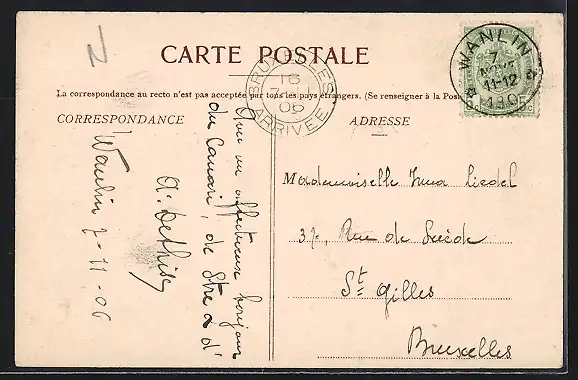 CARTE POSTALE
La correspondance au recto n'est pas acceptée par tous les pays étrangers. (Se renseigner à la Poste
CORRESPONDANCE
ADRESSE
WANLIN
7
11-12
190
BRUXELLES
16
7
06
ARRIVEE
N
Wanlin 7-11-06
affectueux bonjour
du Canari, de
Mademoiselle Irma Liedel
37, Rue de Suède
St Gilles
Bruxelles